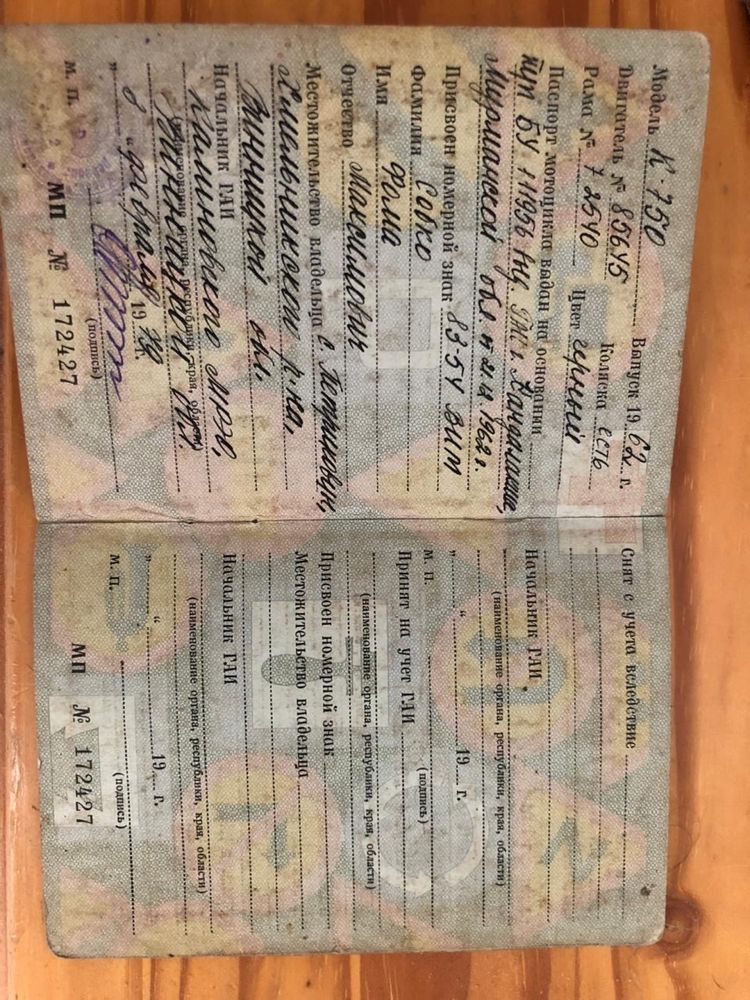 Модель К-750 Выпуск 19 62 г.
Двигатель № 85645 Коляска есть
Рама № 72540 Цвет черный
Паспорт мотоцикла выдан на основании
БУ 111956 г. Кандалакша,
Мурманской обл. 1962 г.
Присвоен номерной знак 83-54 ВИМ
Фамилия Собко
Имя Фома
Отчество Максимович
Местожительство владельца с.
Хмельникского р-на,
Винницкой обл.
Начальник ГАИ Калиновского МРО,
Винницкой обл.
(наименование органа, республики, края, области)
„ 8 “ февраля 19 г.
м. п. (подпись)
МП № 172427
Снят с учета вследствие
Начальник ГАИ
(наименование органа, республики, края, области)
„ “ 19 г.
м. п. (подпись)
Принят на учет ГАИ
(наименование органа, республики, края, области)
Присвоен номерной знак
Местожительство владельца
Начальник ГАИ
(наименование органа, республики, края, области)
„ “ 19 г.
м. п. (подпись)
МП № 172427